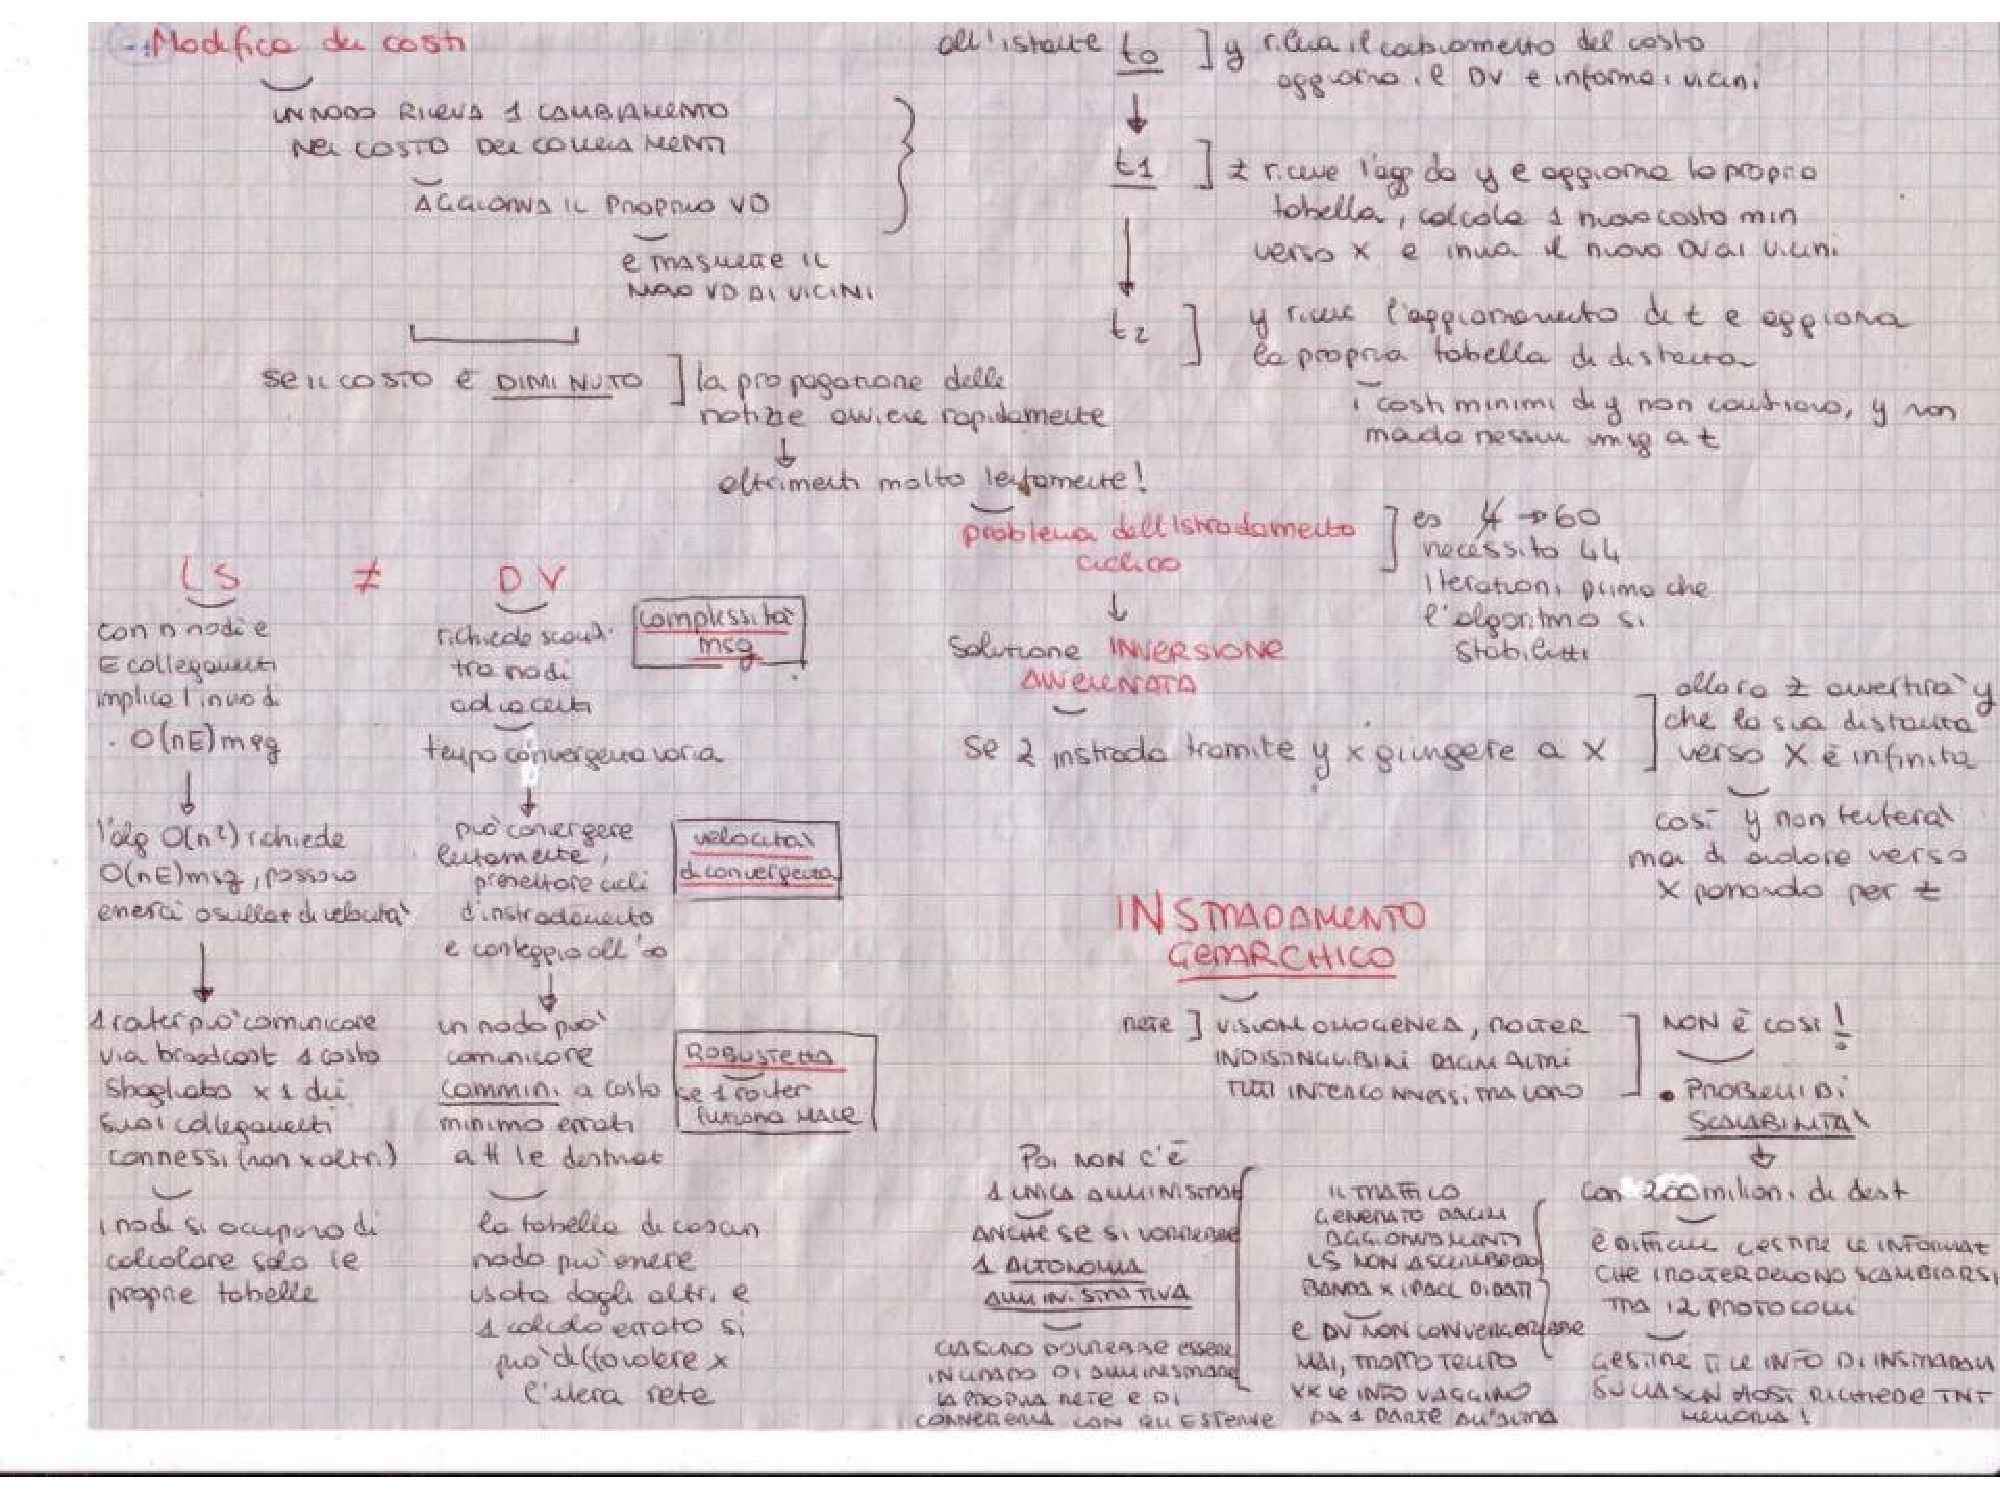 Modifica dei costi
UN NODO RILEVA 1 CAMBIAMENTO
NEL COSTO DEI COLLEGAMENTI
AGGIORNA IL PROPRIO VD
E TRASMETTE IL
NUOVO VD AI VICINI
SE IL COSTO È DIMINUITO ] la propagazione delle
notizie avviene rapidamente
altrimenti molto lentamente!
problema dell'istradamento
ciclico
] es 4 → 60
necessito 44
iterazioni prima che
l'algoritmo si
stabilizzi
Soluzione INVERSIONE
AVVELENATA
se z instrada tramite y x giungere a X
] allora z avvertirà y
che la sua distanza
verso X è infinita
così y non tenterà
mai di andare verso
X passando per z
all'istante t0 ] y rileva il cambiamento del costo
aggiorna il DV e informa i vicini
t1 ] z riceve l'agg da y e aggiorna la propria
tabella, calcola 1 nuovo costo min
verso x e invia il nuovo DV ai vicini
t2 ] y riceve l'aggiornamento di z e aggiorna
la propria tabella di distanza
i costi minimi di y non cambiano, y non
manda nessun msg a z
LS ≠ DV
con n nodi e
E collegamenti
implica l'invio di
O(nE) msg
l'alg O(n²) richiede
O(nE) msg, possono
esserci oscillaz di velocità
1 router può comunicare
via broadcast 1 costo
sbagliato x 1 dei
suoi collegamenti
connessi (non x altri)
i nodi si occupano di
calcolare solo le
proprie tabelle
richiede scambi
tra nodi
adiacenti
tempo convergenza varia
può convergere
lentamente,
presentare cicli
d'instradamento
e conteggio all'∞
un nodo può
comunicare
cammini a costo
minimo errati
a tt le destinaz
la tabella di ciascun
nodo può essere
usata dagli altri e
1 calcolo errato si
può diffondere x
l'intera rete
complessità
msg
velocità
di convergenza
ROBUSTEZZA
se 1 router
funziona male
INSTRADAMENTO
GERARCHICO
RETE ] VISIONE OMOGENEA, ROUTER
INDISTINGUIBILI DAGLI ALTRI
TUTTI INTERCONNESSI TRA LORO
] NON È COSÌ!
• PROBLEMI DI
SCALABILITÀ
Con 200 milioni di dest
È DIFFICILE GESTIRE LE INFORMAZ
CHE I ROUTER DEVONO SCAMBIARSI
TRA I 2 PROTOCOLLI
GESTIRE TT LE INFO DI INSTRADAM
SU CIASCUN HOST RICHIEDE TNT
MEMORIA!
IL TRAFFICO
GENERATO DAGLI
AGGIORNAMENTI
LS NON LASCEREBBERO
BANDA X I PACC DI DATI
E DV NON CONVERGEREBBE
MAI, TROPPO TEMPO
XK LE INFO VAGGINO
DA 1 PARTE ALL'ALTRA
POI NON C'È
1 UNICA AMMINISTRAZ
ANCHE SE SI VORREBBE
1 AUTONOMIA
AMMINISTRATIVA
CIASCUNO DOVREBBE ESSERE
IN GRADO DI AMMINISTRARE
LA PROPRIA RETE E DI
CONNETTERLA CON QU ESTERNE